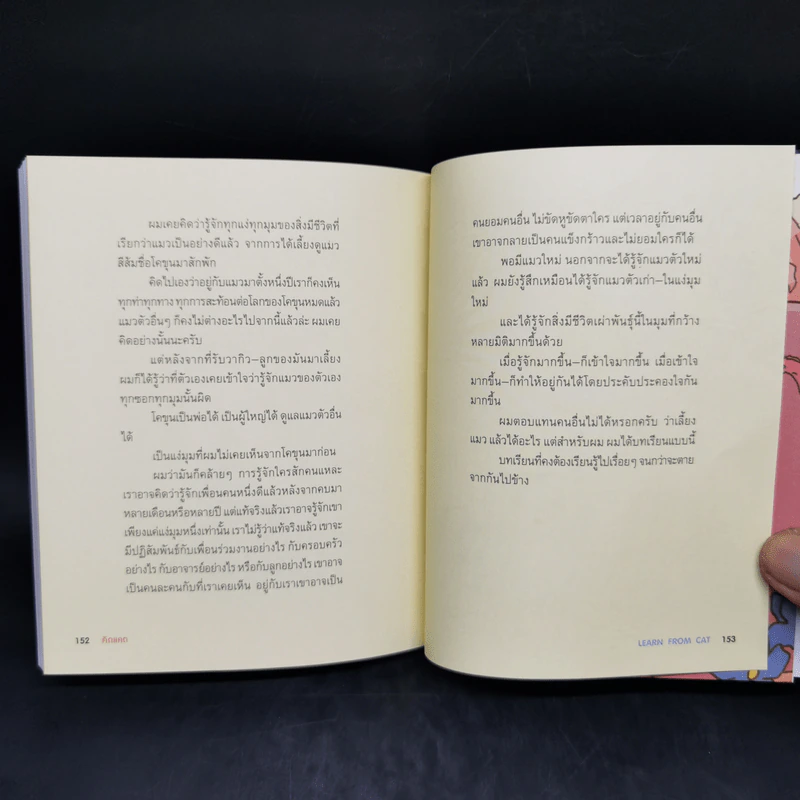 ผมเคยคิดว่ารู้จักทุกแง่ทุกมุมของสิ่งมีชีวิตที่
เรียกว่าแมวเป็นอย่างดีแล้ว จากการได้เลี้ยงดูแมว
สีส้มชื่อโคขุนมาสักพัก
คิดไปเองว่าอยู่กับแมวมาตั้งหนึ่งปีเราก็คงเห็น
ทุกท่าทุกทาง ทุกการสะท้อนต่อโลกของโคขุนหมดแล้ว
แมวตัวอื่นๆ ก็คงไม่ต่างอะไรไปจากนี้แล้วล่ะ ผมเคย
คิดอย่างนั้นนะครับ
แต่หลังจากที่รับวากิว–ลูกของมันมาเลี้ยง
ผมก็ได้รู้ว่าที่ตัวเองเคยเข้าใจว่ารู้จักแมวของตัวเอง
ทุกซอกทุกมุมนั้นผิด
โคขุนเป็นพ่อได้ เป็นผู้ใหญ่ได้ ดูแลแมวตัวอื่น
ได้
เป็นแง่มุมที่ผมไม่เคยเห็นจากโคขุนมาก่อน
ผมว่ามันก็คล้ายๆ การรู้จักใครสักคนแหละ
เราอาจคิดว่ารู้จักเพื่อนคนหนึ่งดีแล้วหลังจากคบมา
หลายเดือนหรือหลายปี แต่แท้จริงแล้วเราอาจรู้จักเขา
เพียงแค่แง่มุมหนึ่งเท่านั้น เราไม่รู้ว่าแท้จริงแล้ว เขาจะ
มีปฏิสัมพันธ์กับเพื่อนร่วมงานอย่างไร กับครอบครัว
อย่างไร กับอาจารย์อย่างไร หรือกับลูกอย่างไร เขาอาจ
เป็นคนละคนกับที่เราเคยเห็น อยู่กับเราเขาอาจเป็น
152 คิดแคท
คนยอมคนอื่น ไม่ขัดหูขัดตาใคร แต่เวลาอยู่กับคนอื่น
เขาอาจกลายเป็นคนแข็งกร้าวและไม่ยอมใครก็ได้
พอมีแมวใหม่ นอกจากจะได้รู้จักแมวตัวใหม่
แล้ว ผมยังรู้สึกเหมือนได้รู้จักแมวตัวเก่า–ในแง่มุม
ใหม่
และได้รู้จักสิ่งมีชีวิตเผ่าพันธุ์นี้ในมุมที่กว้าง
หลายมิติมากขึ้นด้วย
เมื่อรู้จักมากขึ้น–ก็เข้าใจมากขึ้น เมื่อเข้าใจ
มากขึ้น–ก็ทำให้อยู่กันได้โดยประคับประคองใจกัน
มากขึ้น
ผมตอบแทนคนอื่นไม่ได้หรอกครับ ว่าเลี้ยง
แมว แล้วได้อะไร แต่สำหรับผม ผมได้บทเรียนแบบนี้
บทเรียนที่คงต้องเรียนรู้ไปเรื่อยๆ จนกว่าจะตาย
จากกันไปข้าง
LEARN FROM CAT 153